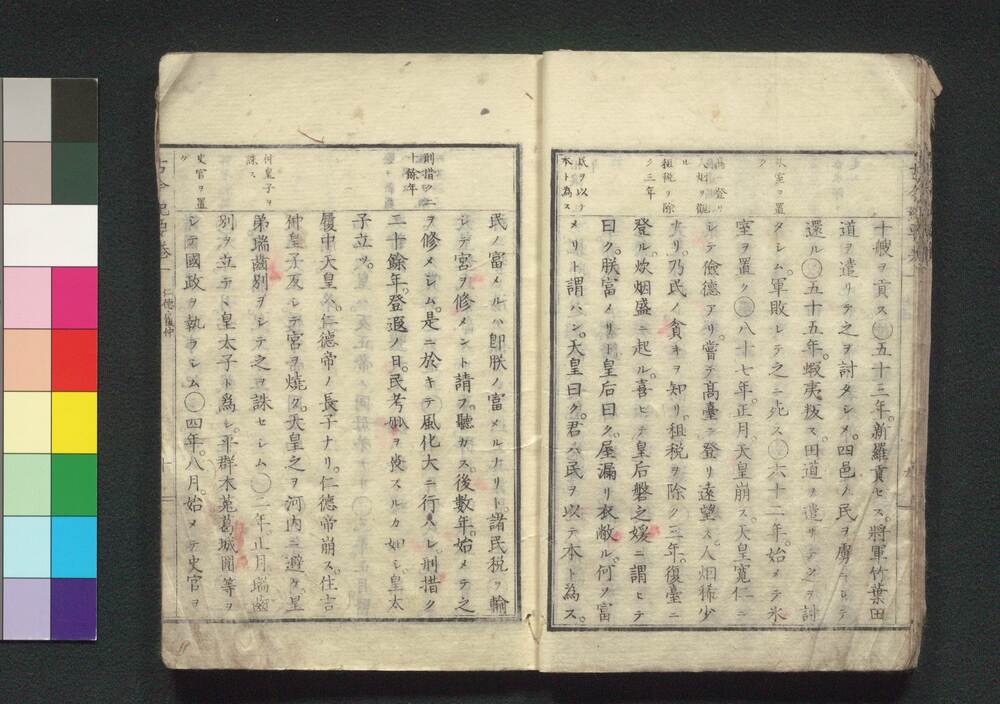 十艘ヲ貢ス○五十三年。新羅貢セス。將軍竹葉田
道ヲ遣リテ之ヲ討タシメ。四邑ノ民ヲ虜ニシテ
還ル○五十五年。蝦夷叛ス。田道ヲ遣リテ之ヲ討
タシム。軍敗レテ之ニ死ス○六十二年。始メテ氷
室ヲ置ク○八十七年正月。天皇崩ス。天皇寬仁ニ
シテ儉德アリ。嘗テ髙臺ニ登リ遠望ス。人烟稀少
ナリ。乃民ノ貧キヲ知リ。租税ヲ除ク三年。復臺ニ
登ル。炊烟盛ニ起ル。喜ヒテ皇后磐之媛ニ謂ヒテ
曰ク。朕富メリト皇后曰ク。屋漏リ衣敝ル。何ノ富
メリト謂ハン。天皇曰ク。君ハ民ヲ以テ本ト為ス。
氷室ヲ置ク
髙臺ニ登リ人烟ヲ觀ル
租税ヲ除ク三年
民ヲ以テ本ト為ス
民ノ富メルハ即朕ノ富メルナリト。諸民税ヲ輸
シテ宮ヲ修メント請フ。聽カス。後數年。始メテ之
ヲ修メシム。是ニ於キテ風化大ニ行ハレ。刑措ク
二十餘年。登遐ノ日。民考妣ヲ喪スルカ如シ。皇太
子立ツ。
履中天皇ハ。仁德帝ノ長子ナリ。仁德帝崩ス。住吉
仲皇子反シテ宮ヲ燒ク。天皇之ヲ河内ニ避ケ。皇
弟瑞齒別ヲシテ之ヲ誅セシム○二年。正月。瑞齒
別ヲ立テヽ皇太子ト為シ。平群木菟葛城圓等ヲ
シテ國政ヲ執ラシム○四年。八月。始メテ史官ヲ
刑措ク二十餘年
仲皇子ヲ誅ス
史官ヲ置ク
仁德 履仲